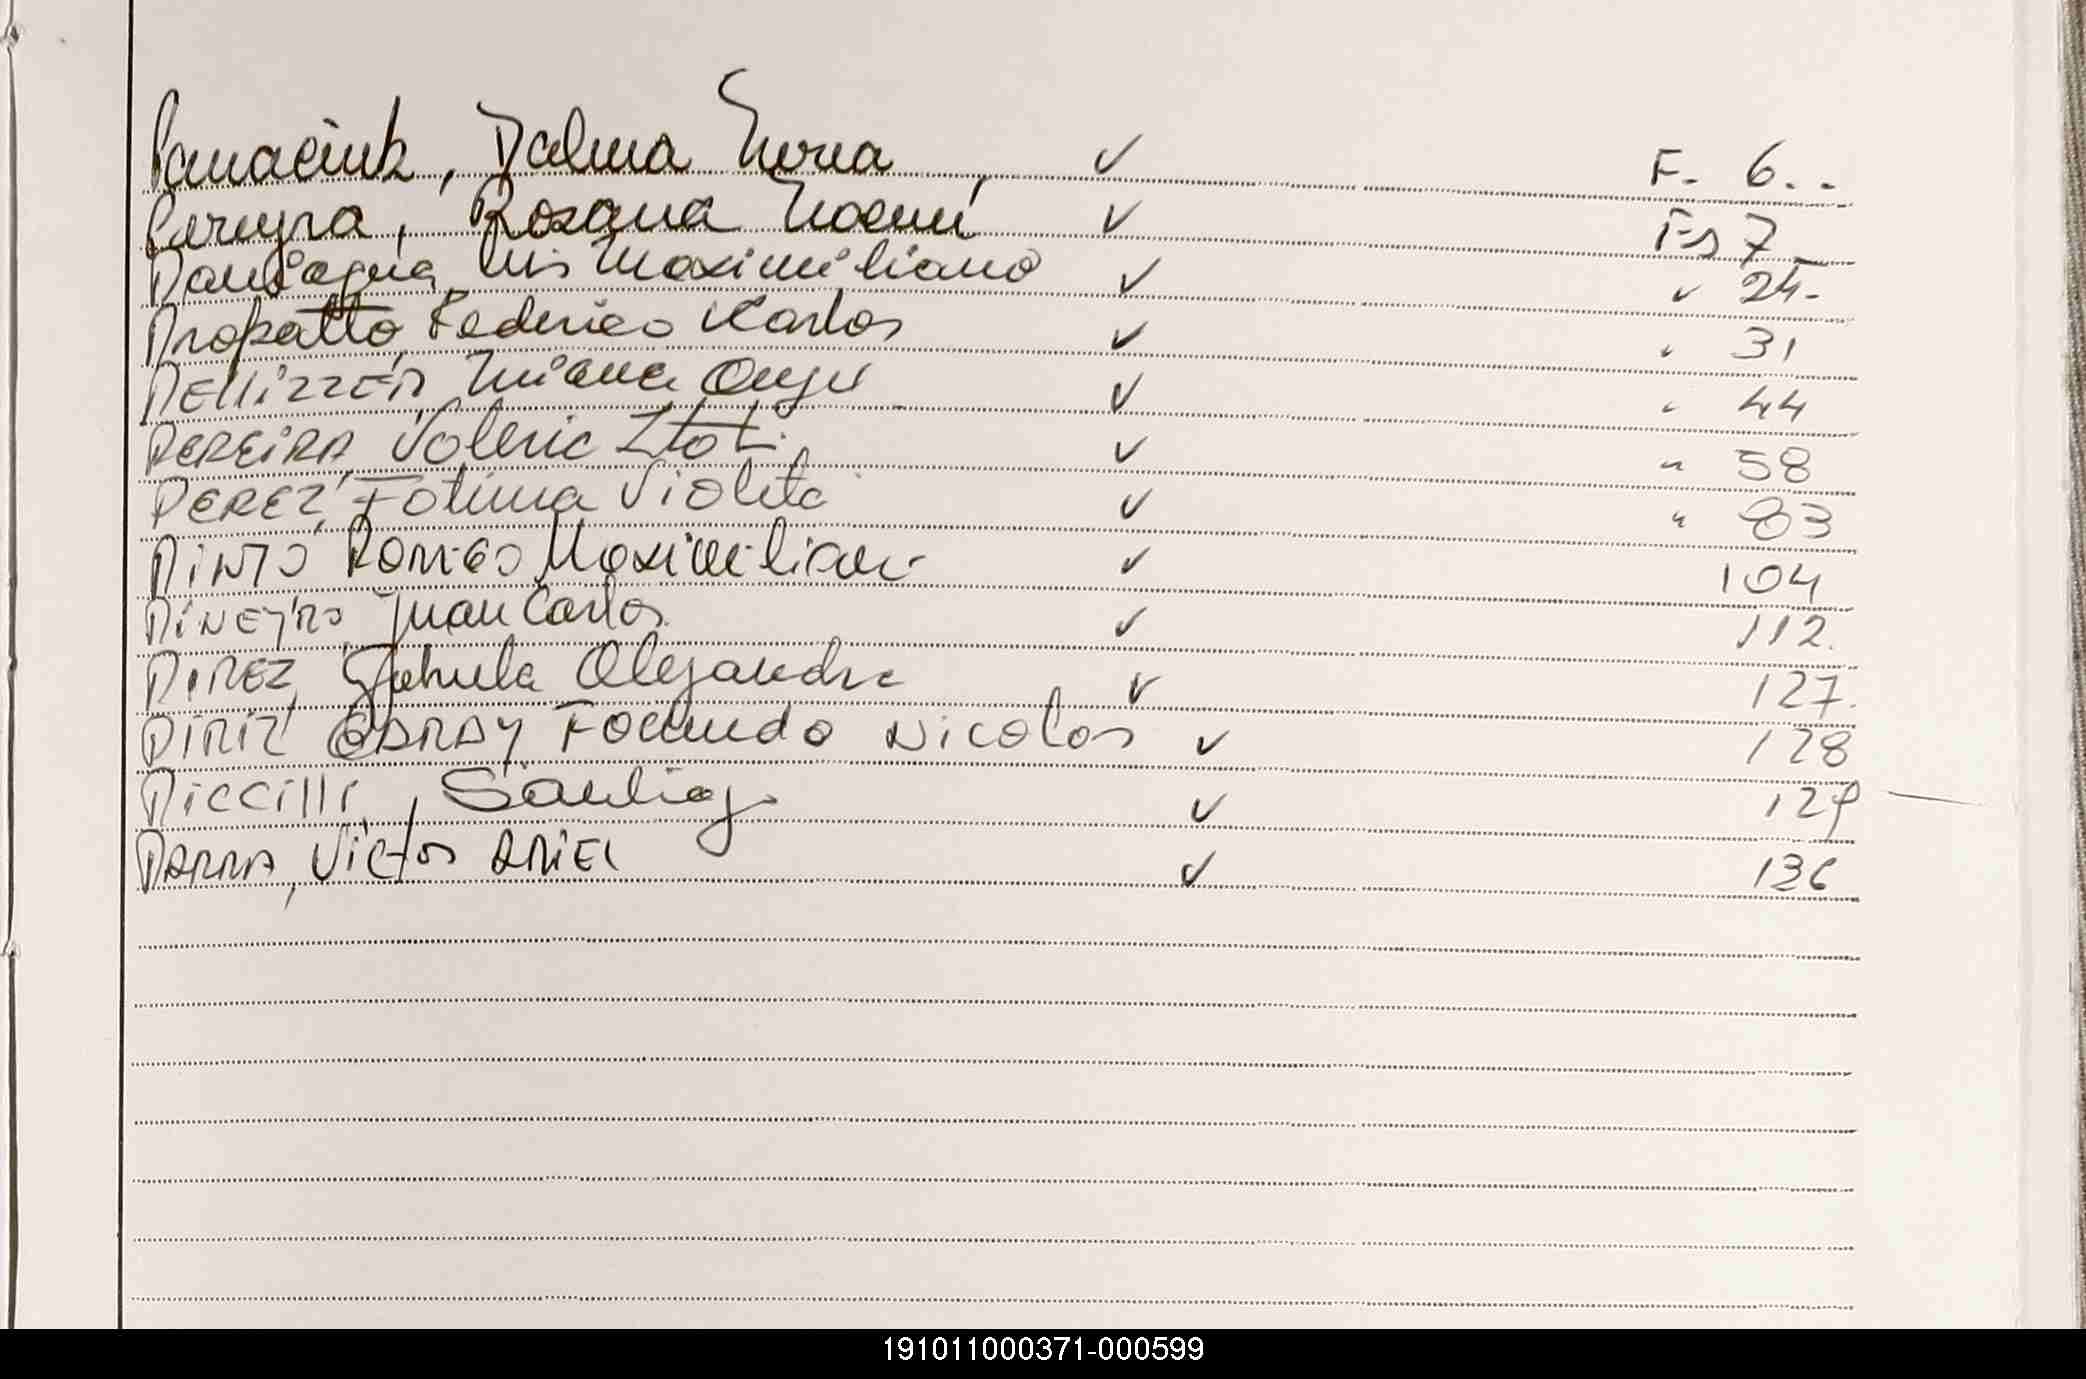 Panaciuk, Dalma Nerea, ✓ F. 6..
Pereyra, Rosana Noemí ✓ Fs 7
Paniagua Luis Maximiliano ✓ " 24-
Propatto, Federico Carlos ✓ " 31
PEllizzER, ✓ " 44
PEREIRA, Valeria Itatí. ✓ " 58
PEREZ, Fatima Violeta ✓ " 83
PiNTO, ROMEO Maximiliano ✓ 104
PiNEYRO, Juan Carlos. ✓ 112.
PiREZ, Alejandra ✓ 127.
PiRIZ GARAY Facundo Nicolas ✓ 128
Piccilli, Santiago ✓ 129
PARRA, Victor ARiEl ✓ 136
191011000371-000599